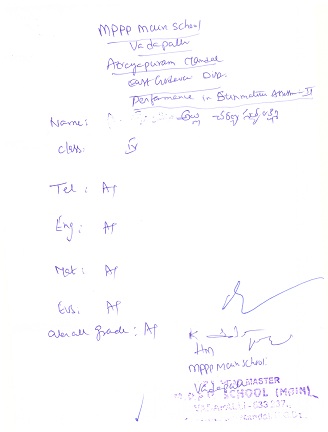 MPPP Main School
Vadapalli
Atreyapuram Mandal
East Godavari Dist.
Performance in Summative Assess - II
Name:
Class: IV
Tel: A+
Eng: A+
Mat: A+
Evs: A+
Overall grade: A+
HM
MPPP Main School
Vadapalli
HEADMASTER
SCHOOL (MAIN)